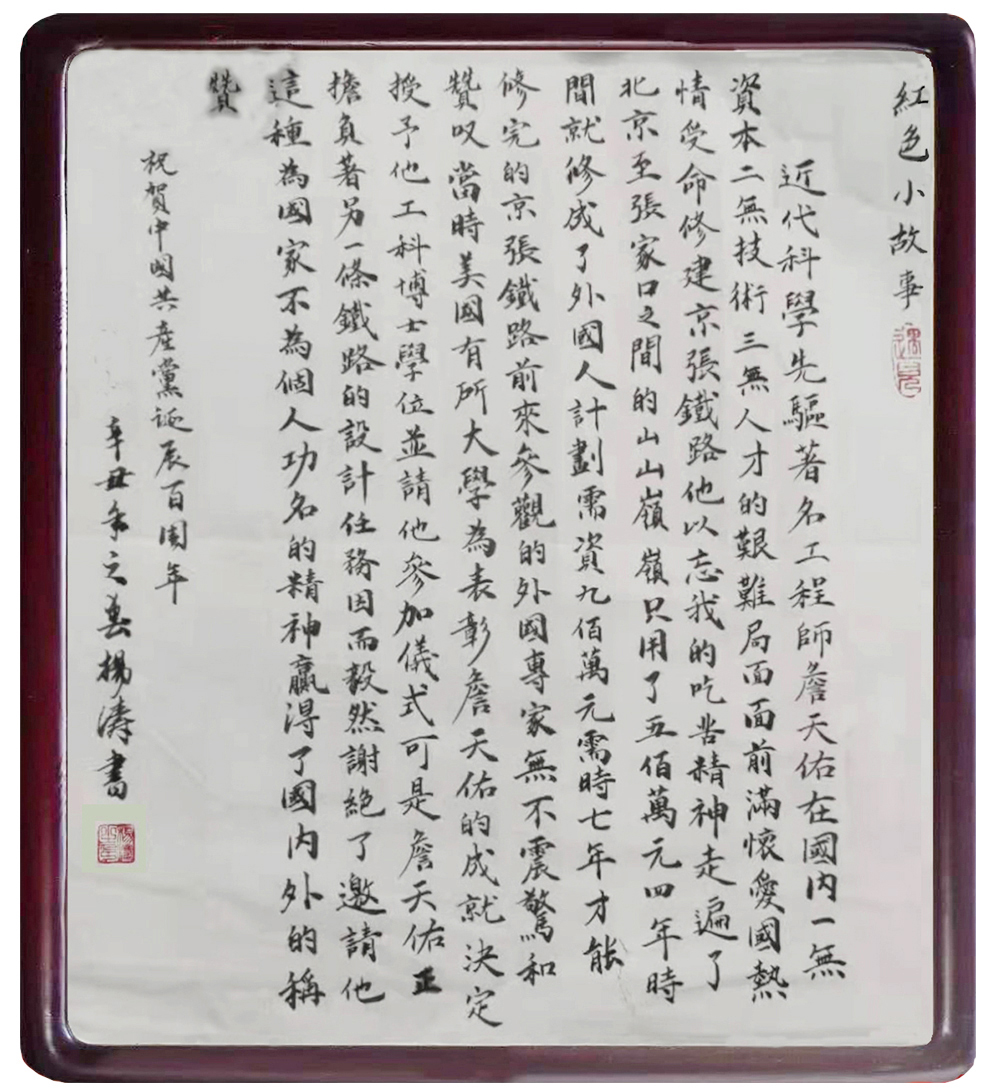 紅色小故事
近代科學先驅著名工程師詹天佑在國内一無
資本二無技術三無人才的艱難局面面前滿懷愛國熱
情受命修建京張鐵路他以忘我的吃苦精神走遍了
北京至張家口之間的山山嶺嶺只用了五佰萬元四年時
間就修成了外國人計劃需資九佰萬元需時七年才能
修完的京張鐵路前來參觀的外國專家無不震驚和
贊叹當時美國有所大學為表彰詹天佑的成就決定
授予他工科博士學位並請他參加儀式可是詹天佑正
擔負著另一條鐵路的設計任務因而毅然謝絕了邀請他
這種為國家不為個人功名的精神贏得了國内外的稱
贊
祝賀中國共產黨诞辰百周年
辛丑年之春楊濤書